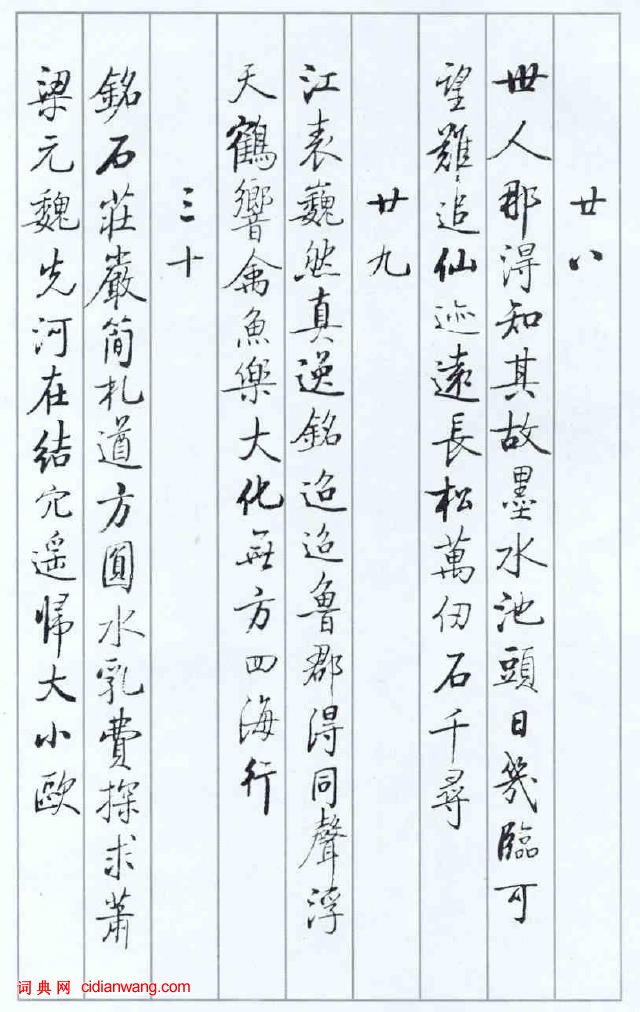 廿八
世人那得知其故墨水池頭日幾臨可
望難追仙迹遠長松萬仞石千尋
廿九
江表巍然真逸銘迢迢魯郡得同聲浮
天鶴響禽魚樂大化無方四海行
三十
銘石莊嚴簡札遒方圓水乳費探求蕭
梁元魏先河在結穴遥歸大小歐
词典网 cidianwang.com